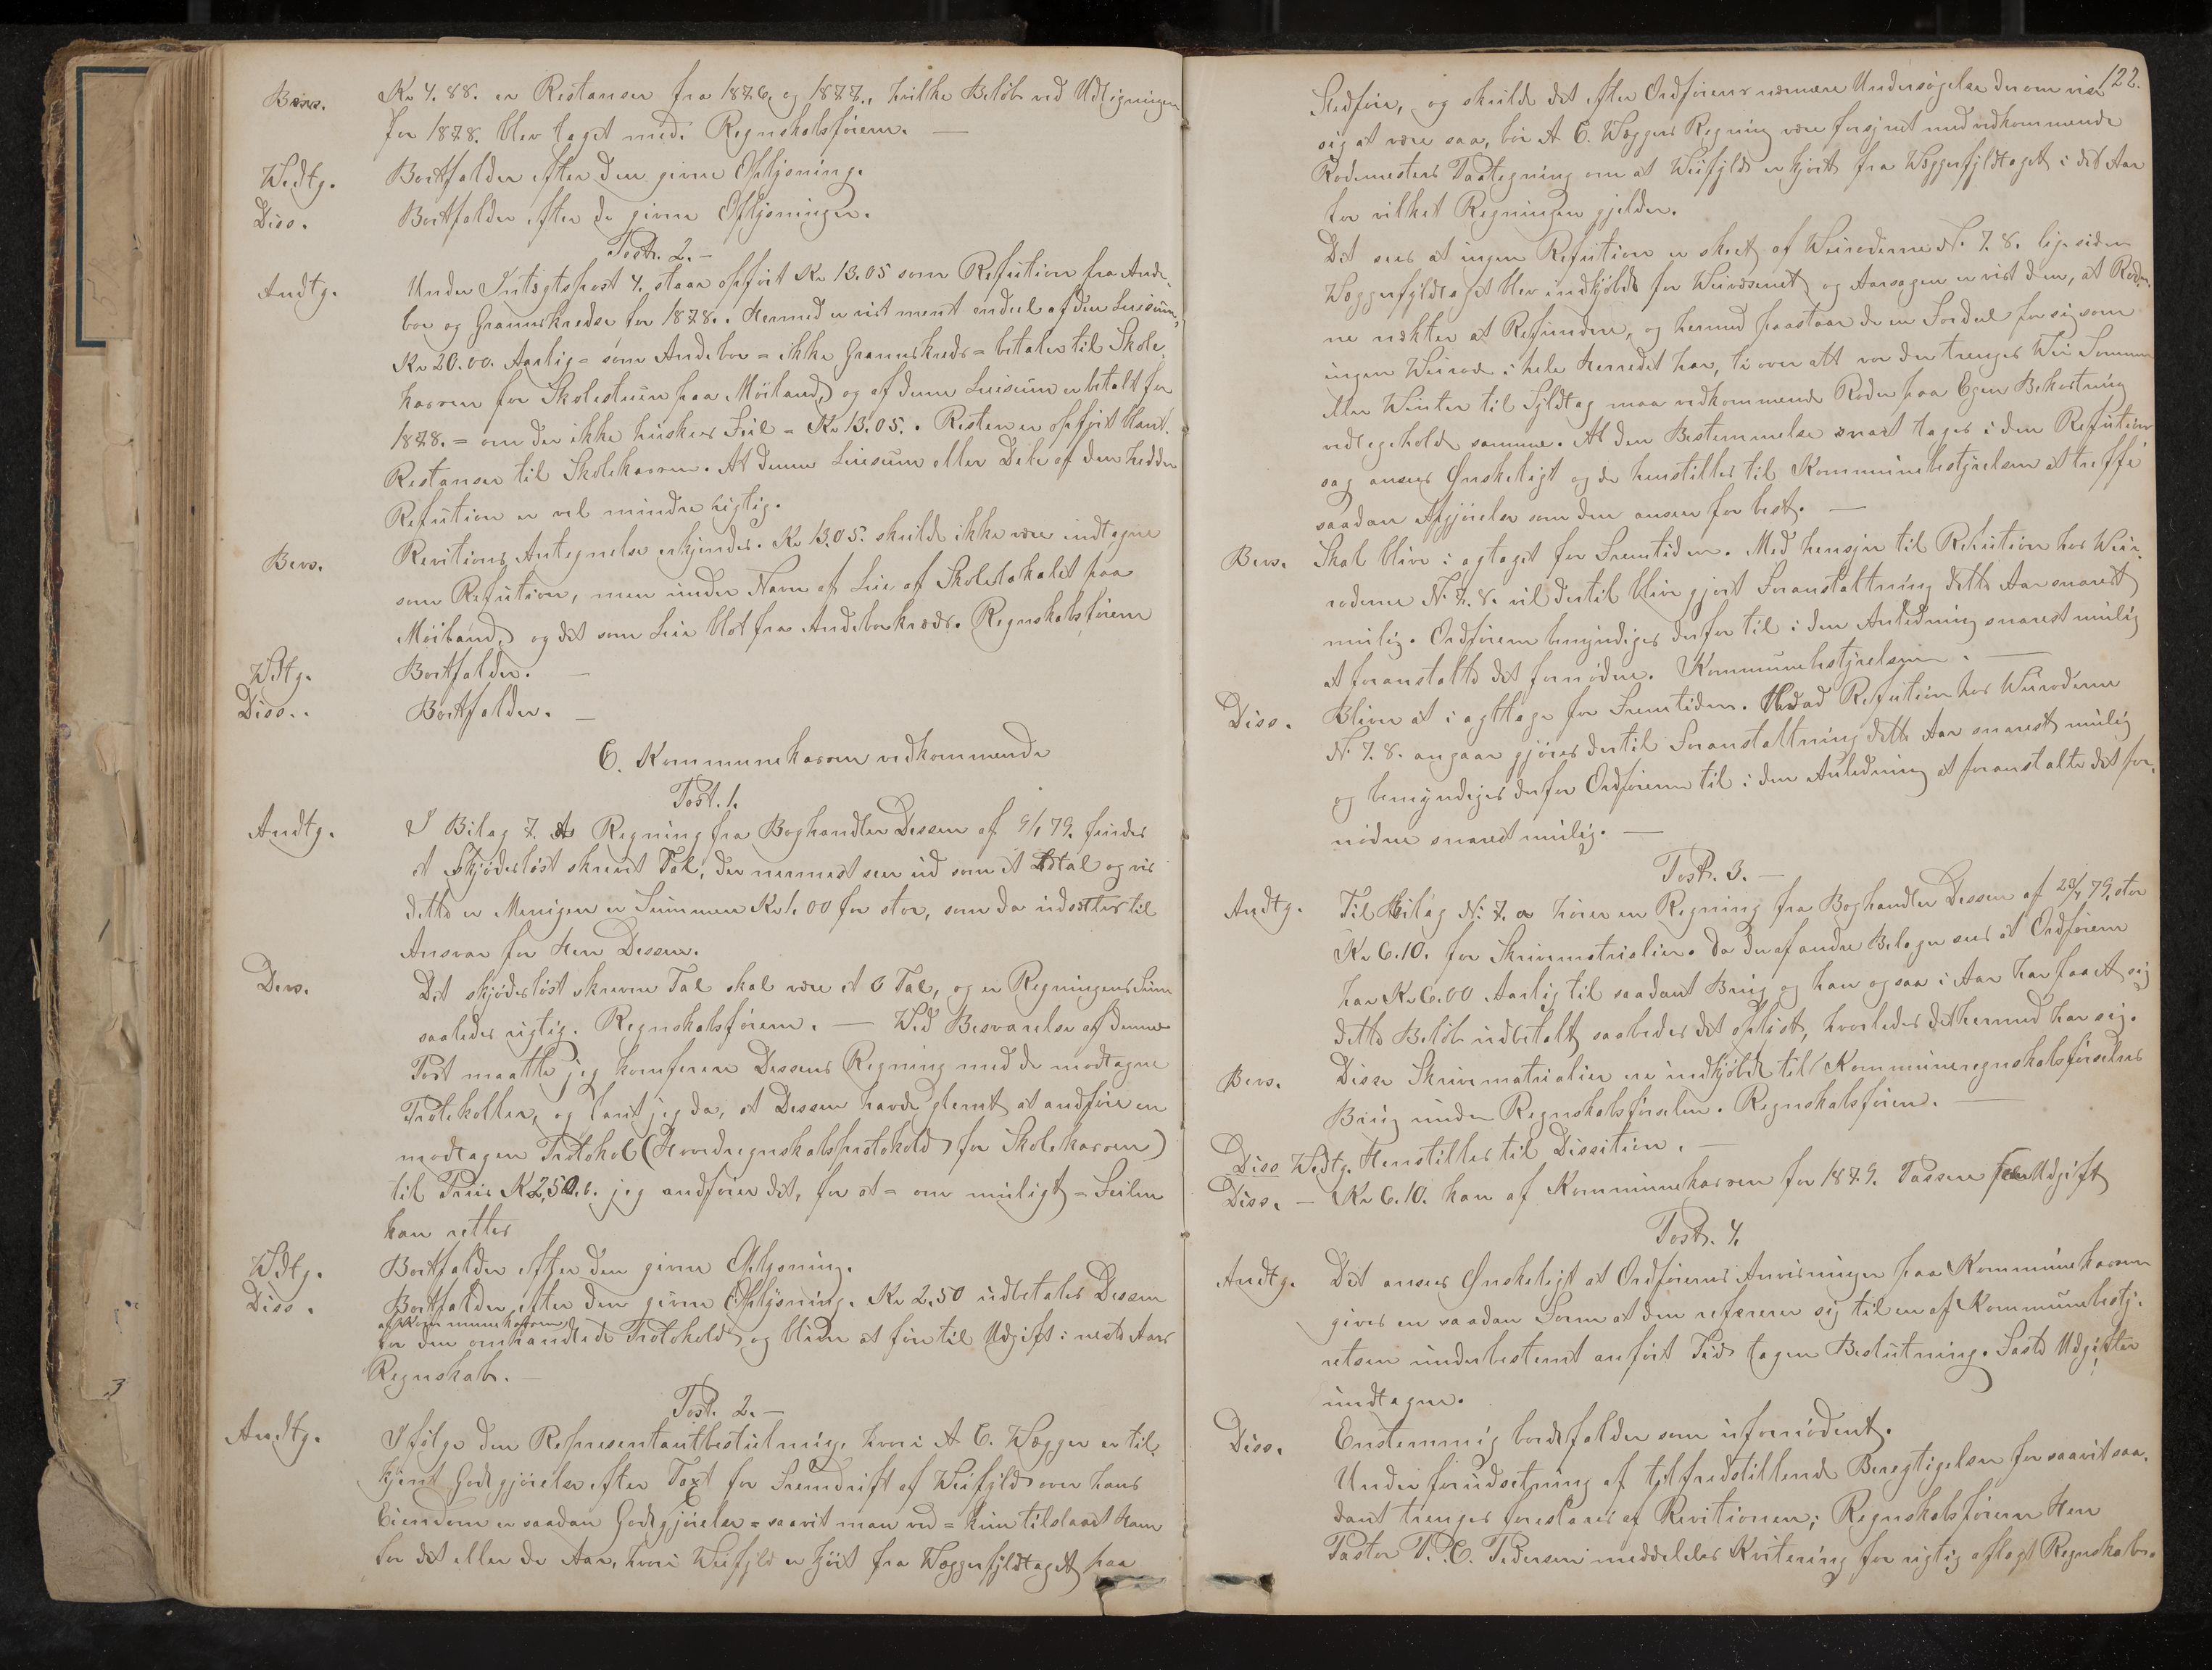 Besv. Kr 4.88. er Restanser fra 1876 og 1877., hvilke Beløb ved Udligningen
for 1878. blev taget med. Regnskabsføreren. —
Wedtg. Bortfalder efter den givne Oplysning.
Diss. Bortfalder efter de givne Oplysninger.
Post. 2. —
Andtg. Under Indtægtspost 4. staar opført Kr 13.05 som Refution fra Ande-
bor og Grannskredse for 1878. Hermed er vist ment endeel af den Leiesum,
Kr 20.00. Aarlig = som Andebor = ikke Grannskreds = betaler til Skole-
kassen for Skolestuen paa Møiland, og af denne Leiesum er betalt for
1878. = om der ikke huskes Feil = Kr 13.05. Resten er opført blant
Restanser til Skolekassen. At denne Leiesum eller Dele af den hedder
Refution er vel mindre rigtig.
Besv. Revitions Antegnelse erkjendes. Kr 13.05. skulde ikke være indtagne
som Refution, men under Navn af Leie af Skolelokalet paa
Møiland, og det som Leie blot fra Andeborkreds. Regnskabsføreren
Wdtg. Bortfalder. —
Diss.. Bortfalder. —
C. Kommunekassen vedkommende
Post. 1.
Andtg. I Bilag 7. A Regning fra Boghandler Dessen af 9/1 79. findes
et skjødesløst skrevet Tal, der nermest seer ud som et 1tal og vis
dette er Menigen er Summen Kr 1.00 for stor, som da udsættes til
Ansvar for Herr Dessen.
Besv. Det skjødesløst skrevne Tal skal være et 0 Tal, og er Regningens Sum
saaledes rigtig. Regnskabsføreren. — Wed Besvarelse af denne
Post maatte jeg konferere Dessens Regning med de modtagne
Protokoller, og fant jeg da, at Dessen havde glemt at andføre en
modtagen Protokol (Hovedregnskabsprotokold for Skolekassen)
til Priis Kr 2,50. jeg andfører det, for at = om muligt = Feilen
kan rettes
Wdtg. Bortfalder efter den givne Oplysning.
Diss. Bortfalder efter den givne Oplysning. Kr 2,50 udbetales Dessen
af Kommunekassen
for den omhandlede Protokold og bliver at føre til Udgift i neste Aars
Regnskab. —
Post. 2. —
Andtg. Ifølge den Representantbeslutning, hvori A C. Wegger er til-
kjent Godtgjørelse efter Taxt for Fremdrift af Weifyld over hans
Eiendom er saadan Godtgjørelse = saavit man ved = kun tilstaaet ham
for det eller de Aar, hvori Weifyld er kjørt fra Weggerfyldtaget paa
122.
Stedføre, og skulde det efter Ordførerens nærmere Undersøgelse derom vise
sig at være saa, bør A C. Weggers Regning være forsynet med vedkommende
Rodemesters Paategning om at Weifyld er kjørt fra Weggerfyldtaget i det Aar
for vilket Regningen gjelder.
Det sees at ingen Refution er skeet af Weiroderne No. 7. 8. lige siden
Weggerfyldtaget blev indkjøbt for Weivæsenet og Aarsagen er vist den, at Roder-
ne nekter at Refundere, og hermed paastaar de en Fordeel for sig som
ingen Weirode i hele Herredet har, ti over alt vor der trenges Wei Sommer
eller Winter til Fyldtag maa vedkommende Roder paa Egen Bekostning
vedlegeholde samme. At den Bestemmelse snart tages i den Refutions
sag ansees Ønskeligt og de henstilles til Kommunebestyrelsen at treffe
saadan Afgjørelse som den anser for best. —
Besv. Skal blive iagtaget for Fremtiden. Med hensyn til Refution hos Wei-
roderne No. 7. 8. vil dertil blive gjort Foranstaltning dette Aar snarest
mulig. Ordføreren bemyndiges derfor til i den Anledning snarest mulig
at foranstalte det fornødne. Kommunebestyrelsen. —
Diss. Bliver at iagttage for Fremtiden. Hvad Refution hos Weiroderne
No. 7. 8. angaar gjøres dertil Foranstaltning dette Aar snarest mulig
og bemyndiges derfor Ordføreren til i den Anledning at foranstalte det for-
nødne snarest mulig. —
Post. 3. —
Andtg. Til Bilag No. 7. a hører en Regning fra Boghandler Dessen af 23/4 79, stor
Kr 6.10. for Skrivmatrialier. Da der af andre Belager sees at Ordføreren
har Kr 6.00 Aarlig til saadant Brug og han ogsaa i Aar har faaet sig
dette Beløb udbetalt saa bedes det oplyst, hvorledes det hermed har sig.
Besv. Disse Skrivmatrialier ere indkjøbte til Kommuneregnskabsførselens
Brug under Regnskabsførselen. Regnskabsføreren. —
Diss Wedtg. Henstilles til Dissition. —
Diss. — Kr 6.10. kan af Kommunekassen for 1879. Passere som Udgift
Post. 4.
Andtg. Det ansees Ønskeligt at Ordførerens Anvisninger paa Kommunekassen
gives en saadan Form at den refererer sig til en af Kommunebesty-
relsen under bestemt anført Tid tagen Beslutning. Faste Udgifter
undtagne.
Diss. Enstemmig bortfalder som ufornødent.
Under forudsetning af tilfredstillende Beregtigelser for saavit saa-
dant trenges foreslaaes af Revitionen; Regnskabsføreren Herr
Pastor P. C. Pedersen meddeles Kvitering for rigtig aflagt Regnskaber.